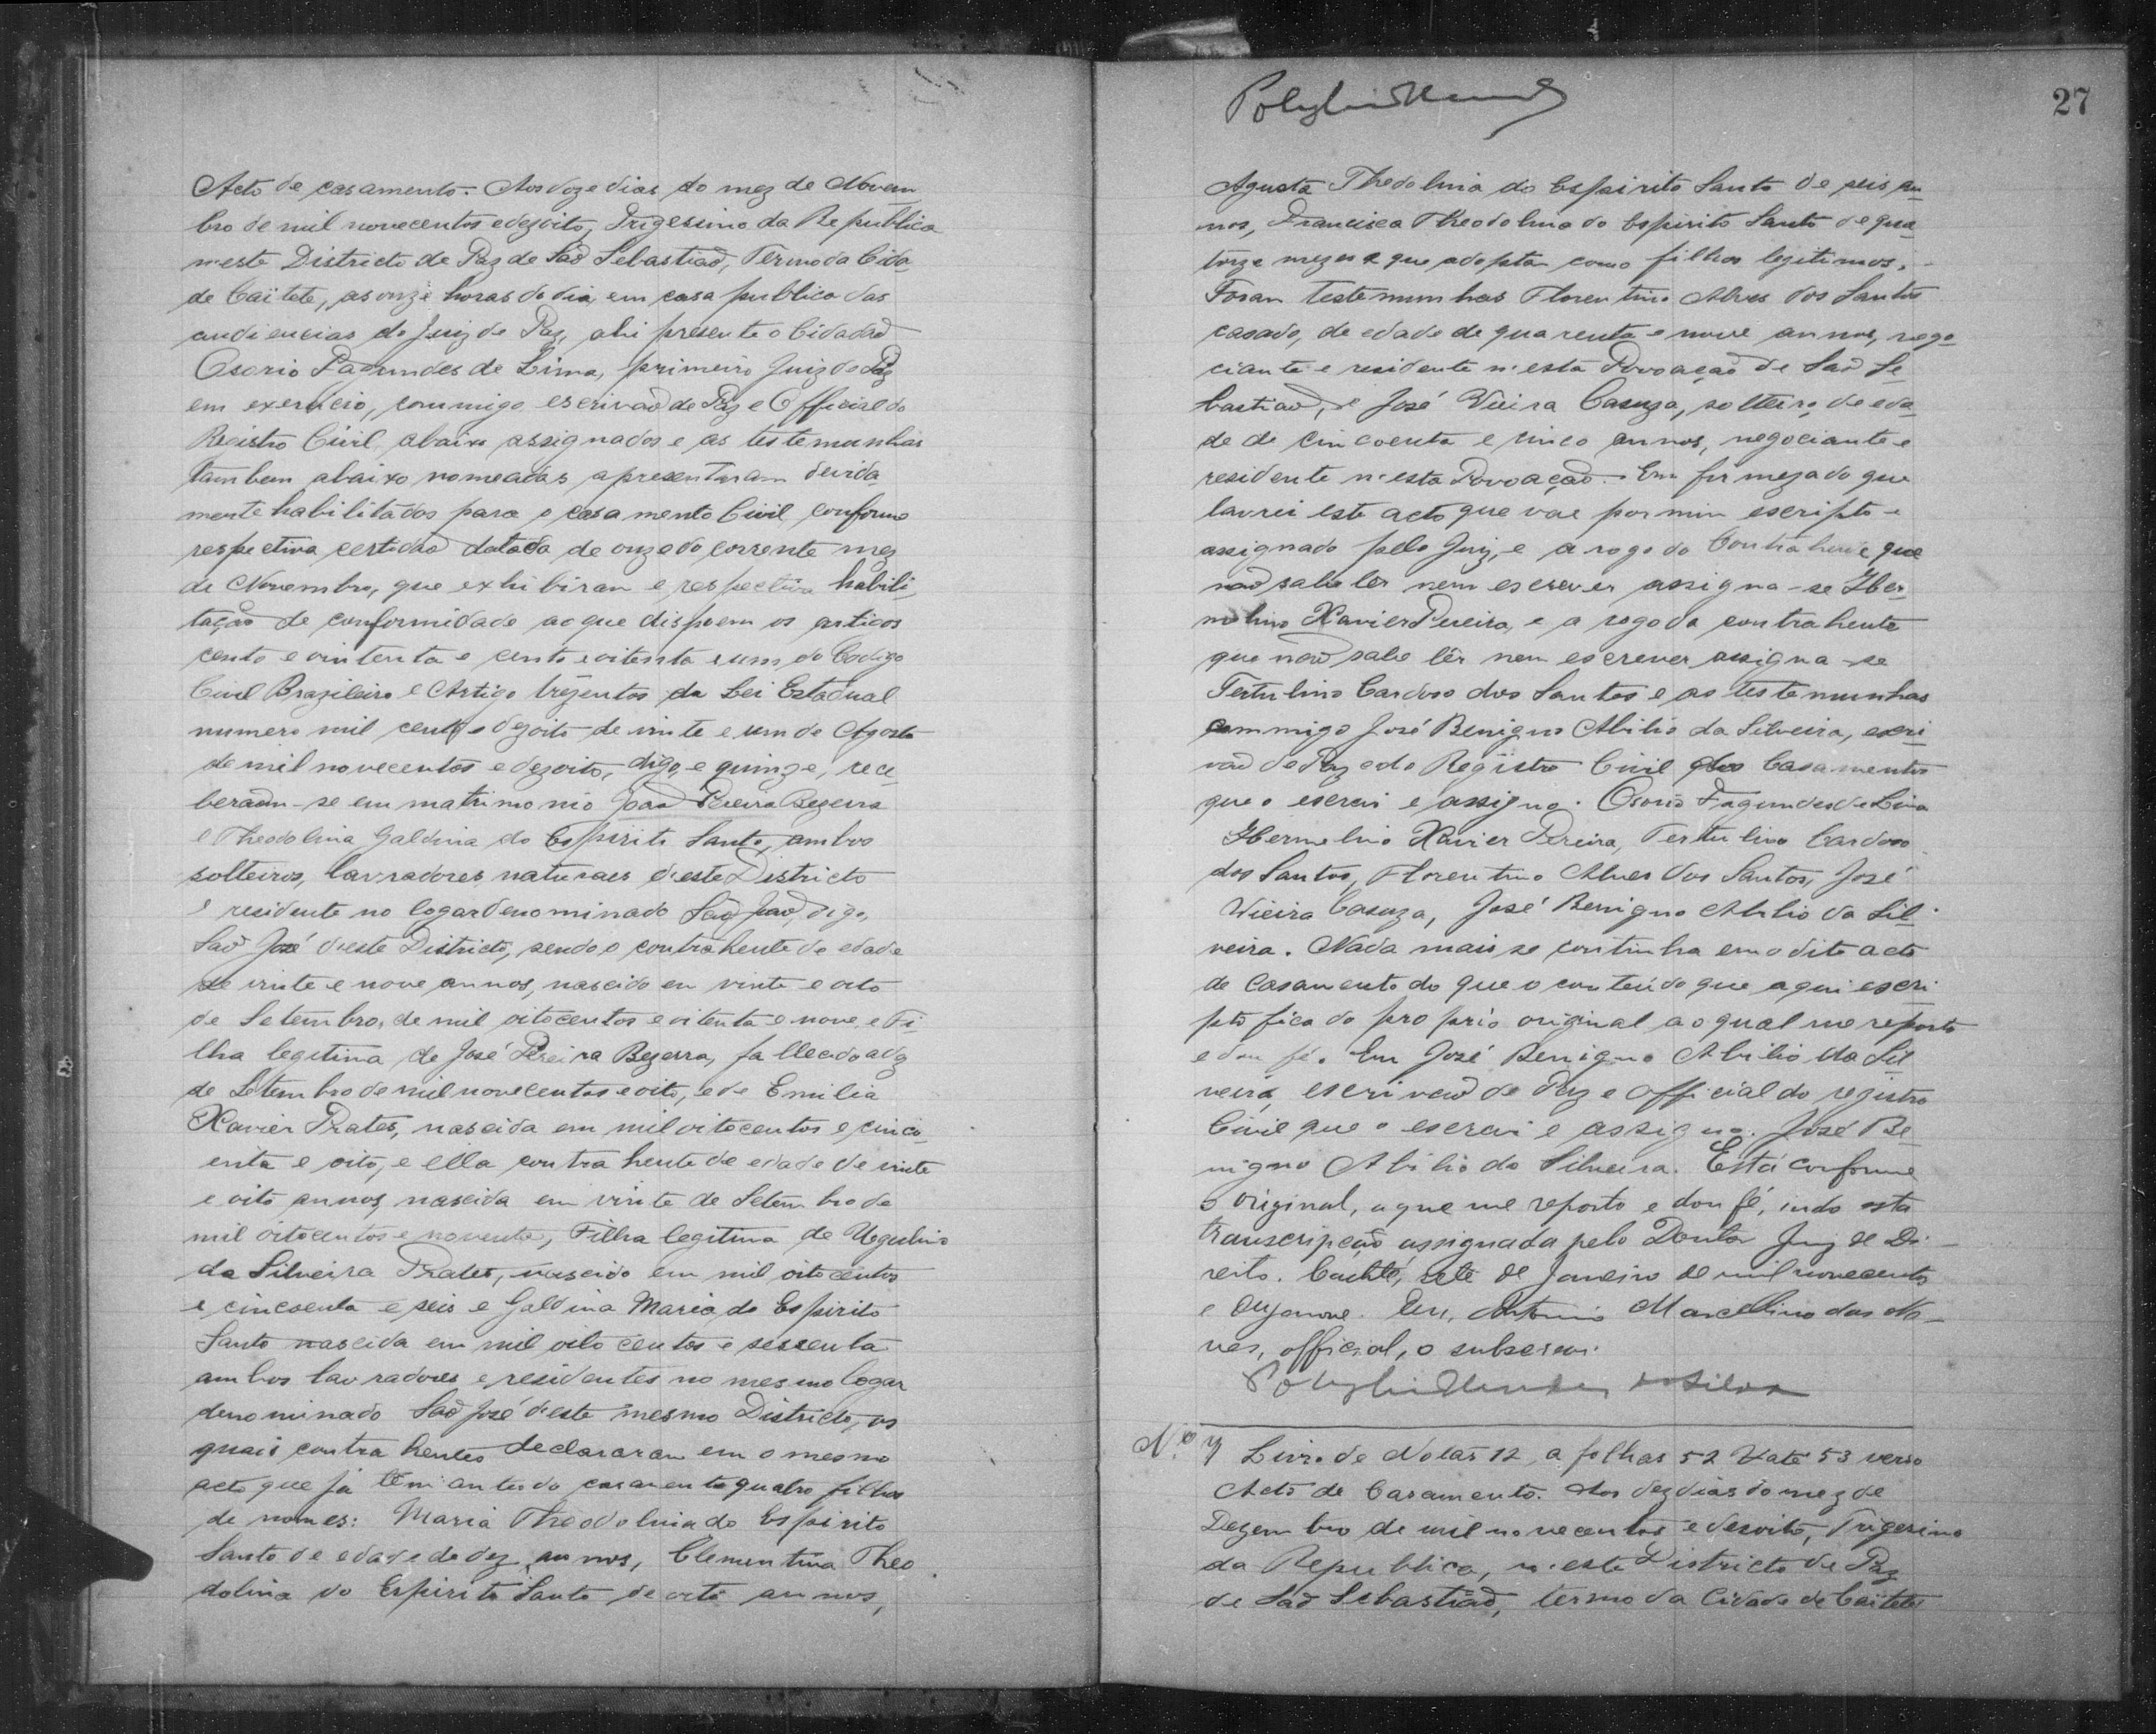 Acto de casamento. Aos doze dias do mez de Novem
bro de mil novecentos e dezoito, Trigesimo da Republica
n'este Districto de Paz de São Sebastião, Termo da Cida
de Caiteté, as onze horas do dia, em casa publica das
audiencias do Juiz de Paz, ahi presente o Cidadão
Osorio Fagundes de Lima, primeiro Juiz de Paz
em exercicio, commigo escrivão de Paz e Official do
Registro Civil abaixo assignados e as testemunhas
tambem abaixo nomeadas apresentaram devida
mente habilitados para o casamento Civil, conforme
respectiva certidão datada de onze do corrente mez
de Novembro, que exhibiram e respectiva habili
tação de conformidade ao que dispoem os artigos
cento e oitenta e cento e oitenta e um do Codigo
Civil Brazileiro e Artigo trezentos da Lei Estadual
numero mil cento e dezoito de vinte e um de Agosto
de mil novecentos e dezoito, digo, e quinze, rece
beram-se em matrimonio João Pereira Bezerra
e Theodolina Galdina do Espirito Santo, ambos
solteiros, lavradores naturaes d'este Districto
e residente no logar denominado São João, digo,
São José d'este Districto, sendo o contrahente de edade
de vinte e nove annos, nascido em vinte e oito
de Setembro, de mil oitocentos e oitenta e nove, e Fi
lha legitima de José Pereira Bezerra, fallecido a dez
de Setembro de mil novecentos e oito, e de Emilia
Xavier Prates, nascida em mil oitocentos e cinco
enta e oito, e ella contrahente de edade de vinte
e oito annos, nascida em vinte de Setembro de
mil oitocentos e noventa, Filha legitima de Ugulino
da Silveira Prates, nascido em mil oitocentos
e cincoenta e seis e Galdina Maria do Espirito
Santo nascida em mil oito centos e sessenta
ambos lavradores e residentes no mesmo logar
denominado São José d'este mesmo Districto, os
quais contrahentes declararam em o mesmo
acto que já têm antes do casamento quatro filhos
de nomes: Maria Theodolina do Espirito
Santo de edade de dez annos, Clementina Theo
dolina do Espirito Santo de oito annos,
27
Agusta Thedolina do Espirito Santo de seis an
nos, Francisca Theodolina do Espirito Santo de qua
torze mezes e que adoptam como filhos legitimos.
Foram testemunhas Florentino Alves dos Santos
casado, de edade de quarenta e nove annos, nego
ciante e residente n'esta Povoação de São Se
bastião, e José Vieira Casuza, solteiro, de eda
de de cincoenta e cinco annos, negociante e
residente n'esta Povoação. Em firmeza do que
lavrei este acto que vae por mim escripto e
assignado pelo Juiz, e a rogo do Contrahente que
não sabe ler nem escrever assigna-se Her
melino Xavier Pereira, e a rogo da contrahente
que não sabe lêr nem escrever assigna-se
Tertulino Cardoso dos Santos e as testemunhas
commigo José Benigno Abilio da Silveira, escri
vão de Paz e do Registro Civil dos Casamentos
que o escrevi e assigno. Osorio Fagundes de Lima
Hermelino Xavier Pereira, Tertulino Cardoso
dos Santos, Florentino Alves dos Santos, José
Vieira Casuza, José Benigno Abilio da Sil
veira. Nada mais se continha em o dito acto
de Casamento do que o conteúdo que aqui escri
pto fica do proprio original ao qual me reporto
e dou fé. Eu José Benigno Abilio da Sil
veira, escrivão de Paz e official do registro
Civil que o escrevi e assigno. José Be
nigno Abilio da Silveira. Está conforme
o original, a que me reporto e dou fé, indo esta
transcripção assignada pelo Doutor Juiz de Di
reito. Caiteté, sete de Janeiro de mil novecentos
e dezenove. Eu, Antonio Marcellino das Ne
ves, official, o subscrevi.
da Silva
N.º Livro de Notas 12, a folhas 52 V até 53 verso
Acto de Casamento. Aos dez dias do mez de
Dezembro de mil novecentos e dezoito, Trigesimo
da Republica, n'este Districto de Paz
de São Sebastião, termo da Cidade de Caiteté